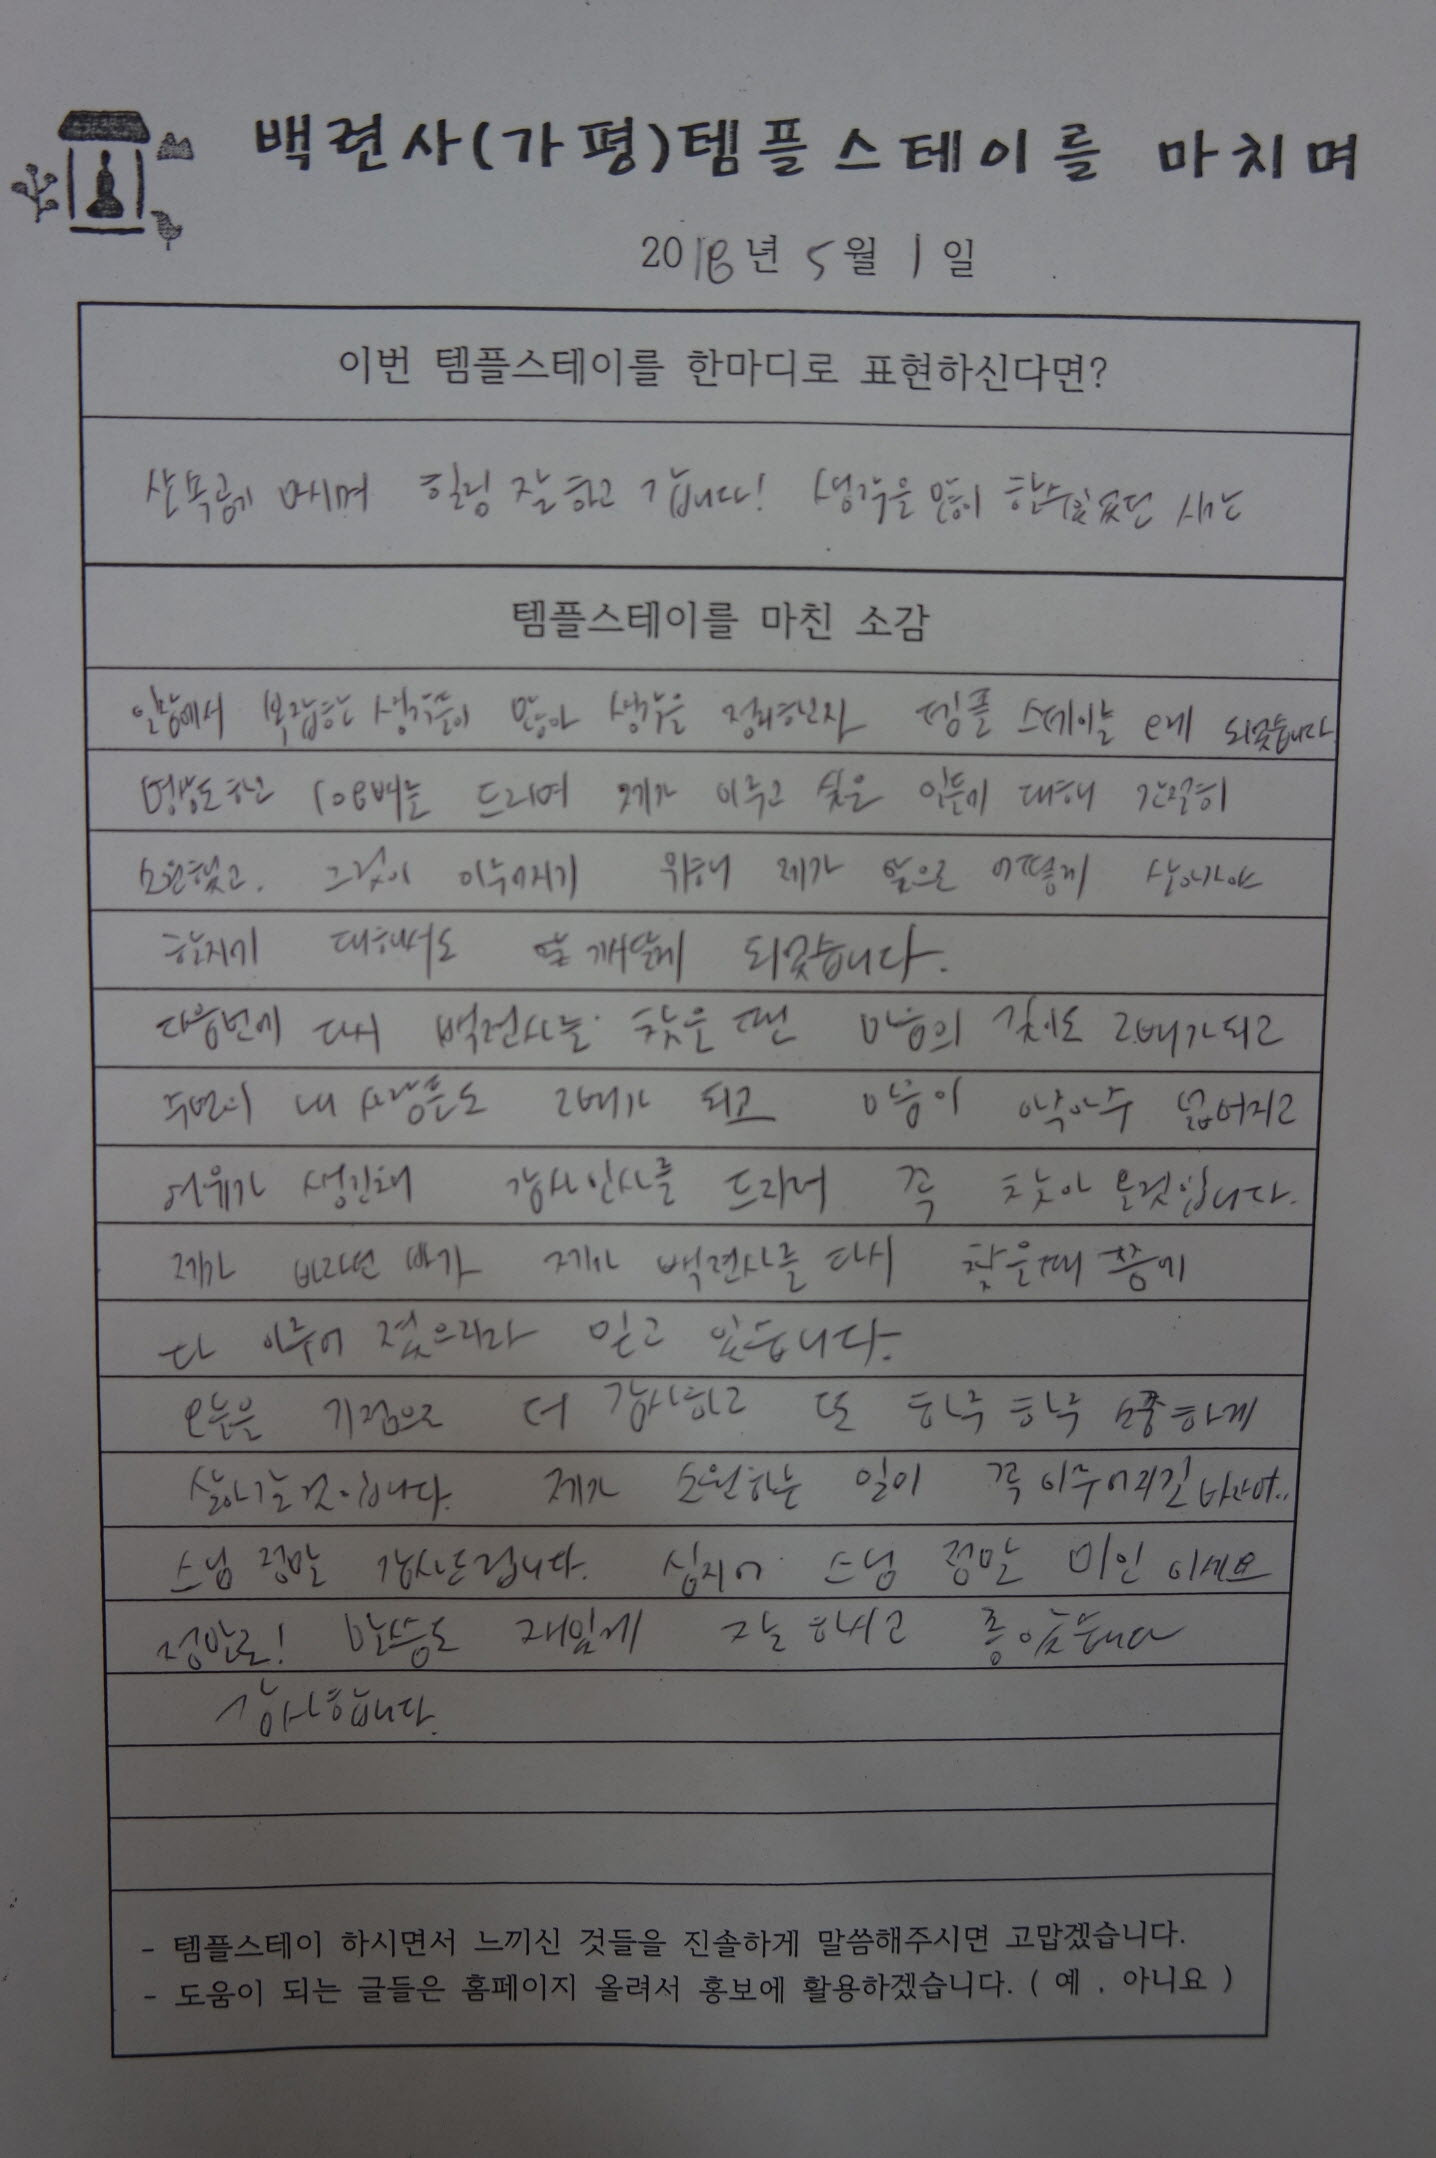 백련사(가평)템플스테이를 마치며
2018년 5월 1일
이번 템플스테이를 한마디로 표현하신다면?
산속공기 마시며 힐링 잘하고 갑니다! 생각을 많이 할수있었던 시간
템플스테이를 마친 소감
일상에서 복잡한 생각들이 많아 생각을 정리하고자 템플 스테이를 오게 되었습니다
명상도하고 108배를 드리며 제가 이루고 싶은 일들에 대해 간절히
소원했고. 그것이 이루어지기 위해 제가 앞으로 어떻게 살아가야
할지에 대해서도 깨닫게 되었습니다.
다음번에 다시 백련사를 찾을 땐 마음의 깊이도 2배가되고
주변에 내 사람들도 2배가 되고 마음이 아주아주 넓어지고
여유가 생긴채 감사인사를 드리러 꼭 찾아 올것입니다.
제가 바라던 바가 제가 백련사를 다시 찾을때 쯤에
다 이루어 졌으리라 믿고 있습니다.
오늘을 기점으로 더 감사하고 또 하루 하루 소중하게
살아갈 것입니다. 제가 소원하는 일이 꼭 이루어지길 바라며..
스님 정말 감사드립니다. 심지어 스님 정말 미인 이세요
정말로! 말씀도 재밌게 잘 하시고 좋았습니다
감사합니다.
- 템플스테이 하시면서 느끼신 것들을 진솔하게 말씀해주시면 고맙겠습니다.
- 도움이 되는 글들은 홈페이지 올려서 홍보에 활용하겠습니다. ( 예 , 아니요 )